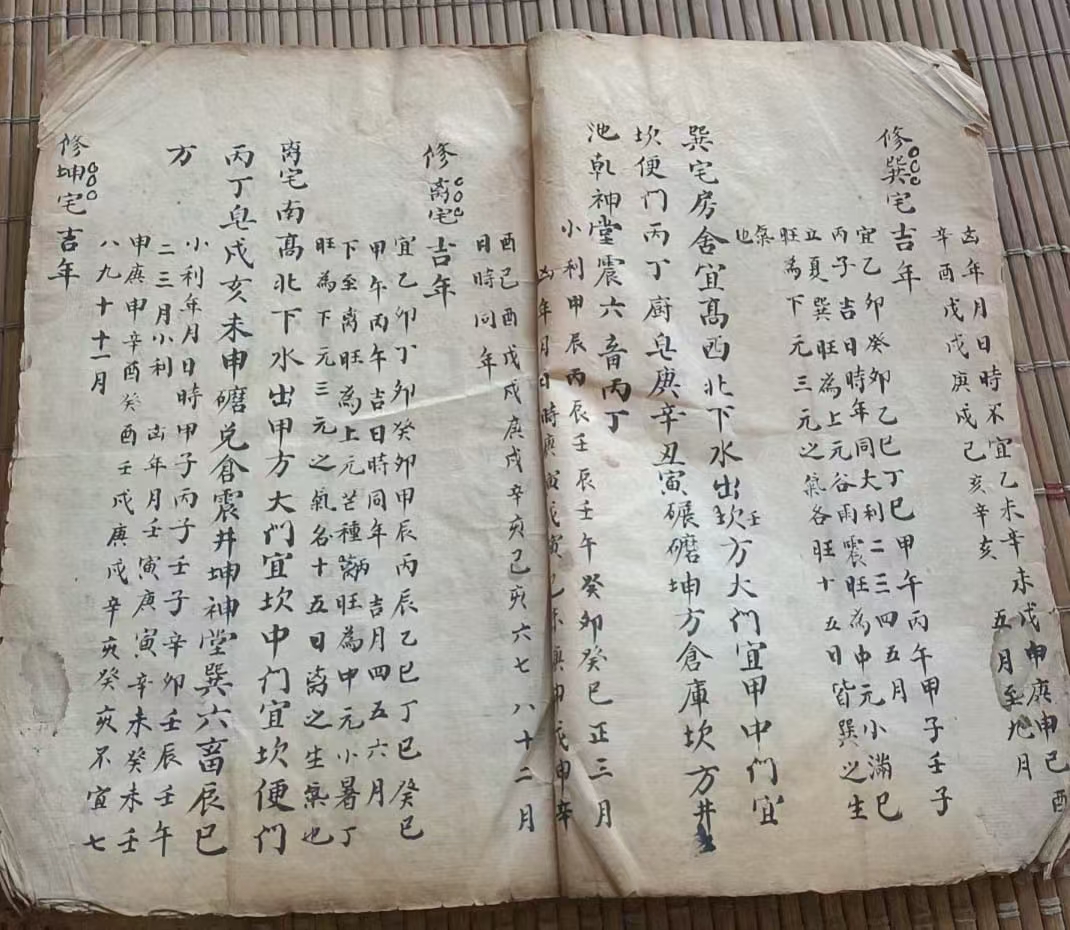 凶年月日時不宜乙未辛未戊申庚申己酉
辛酉戊戌庚戌己亥辛亥五月至九月
修巽宅吉年
宜乙卯癸卯乙巳丁巳甲午丙午甲子壬子
丙子吉日時年同大利二三四五月
立夏巽旺為上元谷雨震旺為中元小滿巳
旺為下元三元之氣各旺十五日皆巽之生
氣也
巽宅房舍宜高西北下水出坎方大門宜甲中門宜
壬
坎便門丙丁厨皂庚辛丑寅碾磨坤方倉庫坎方井
池乾神堂震六畜丙丁
小利甲辰丙辰壬辰壬午癸卯癸巳正三月
凶年月日時庚寅戊寅己未庚申戊申辛
酉己酉戊戌庚戌辛亥己亥六七八十二月
日時同年
修离宅吉年
宜乙卯丁卯癸卯甲辰丙辰乙巳丁巳癸巳
甲午丙午吉日時同年吉月四五六月
下至离旺為上元芒種丙旺為中元小暑丁
旺為下元三元之氣名十五日离之生氣也
离宅南高北下水出甲方大門宜坎中門宜坎便門
丙丁皂戌亥未申磨兑倉震井坤神堂巽六畜辰巳
方
小利年月日時甲子丙子壬子辛卯壬辰壬午
二三月小利凶年月壬寅庚寅辛未癸未壬
申庚申辛酉癸酉壬戌庚戌辛亥癸亥不宜七
八九十十一月
修坤宅吉年